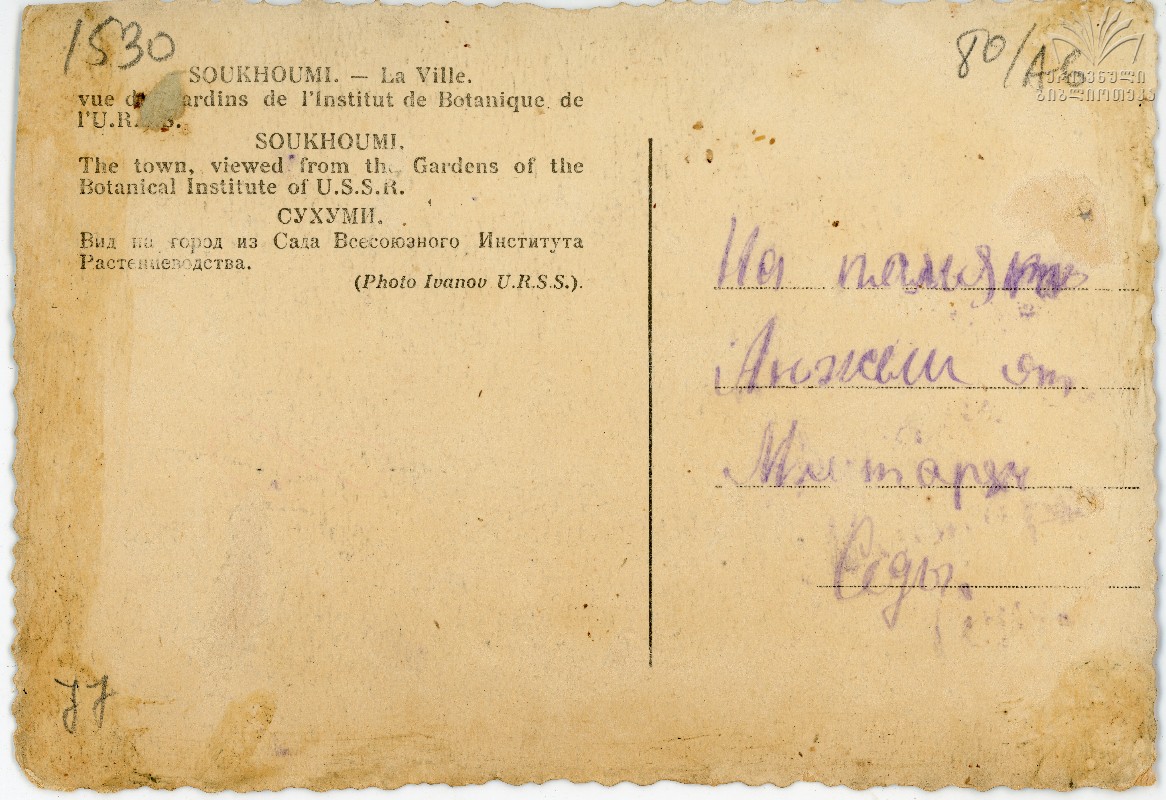 1530
80/A6
ეროვნული
ბიბლიოთეკა
SOUKHOUMI. — La Ville.
vue de ardins de l'Institut de Botanique de
l'U.R. S.
SOUKHOUMI.
The town, viewed from the Gardens of the
Botanical Institute of U.S.S.R.
СУХУМИ.
Вид на город из Сада Всесоюзного Института
Растениеводства.
(Photo Ivanov U.R.S.S.).
На память
Анжели от
Седы.
77